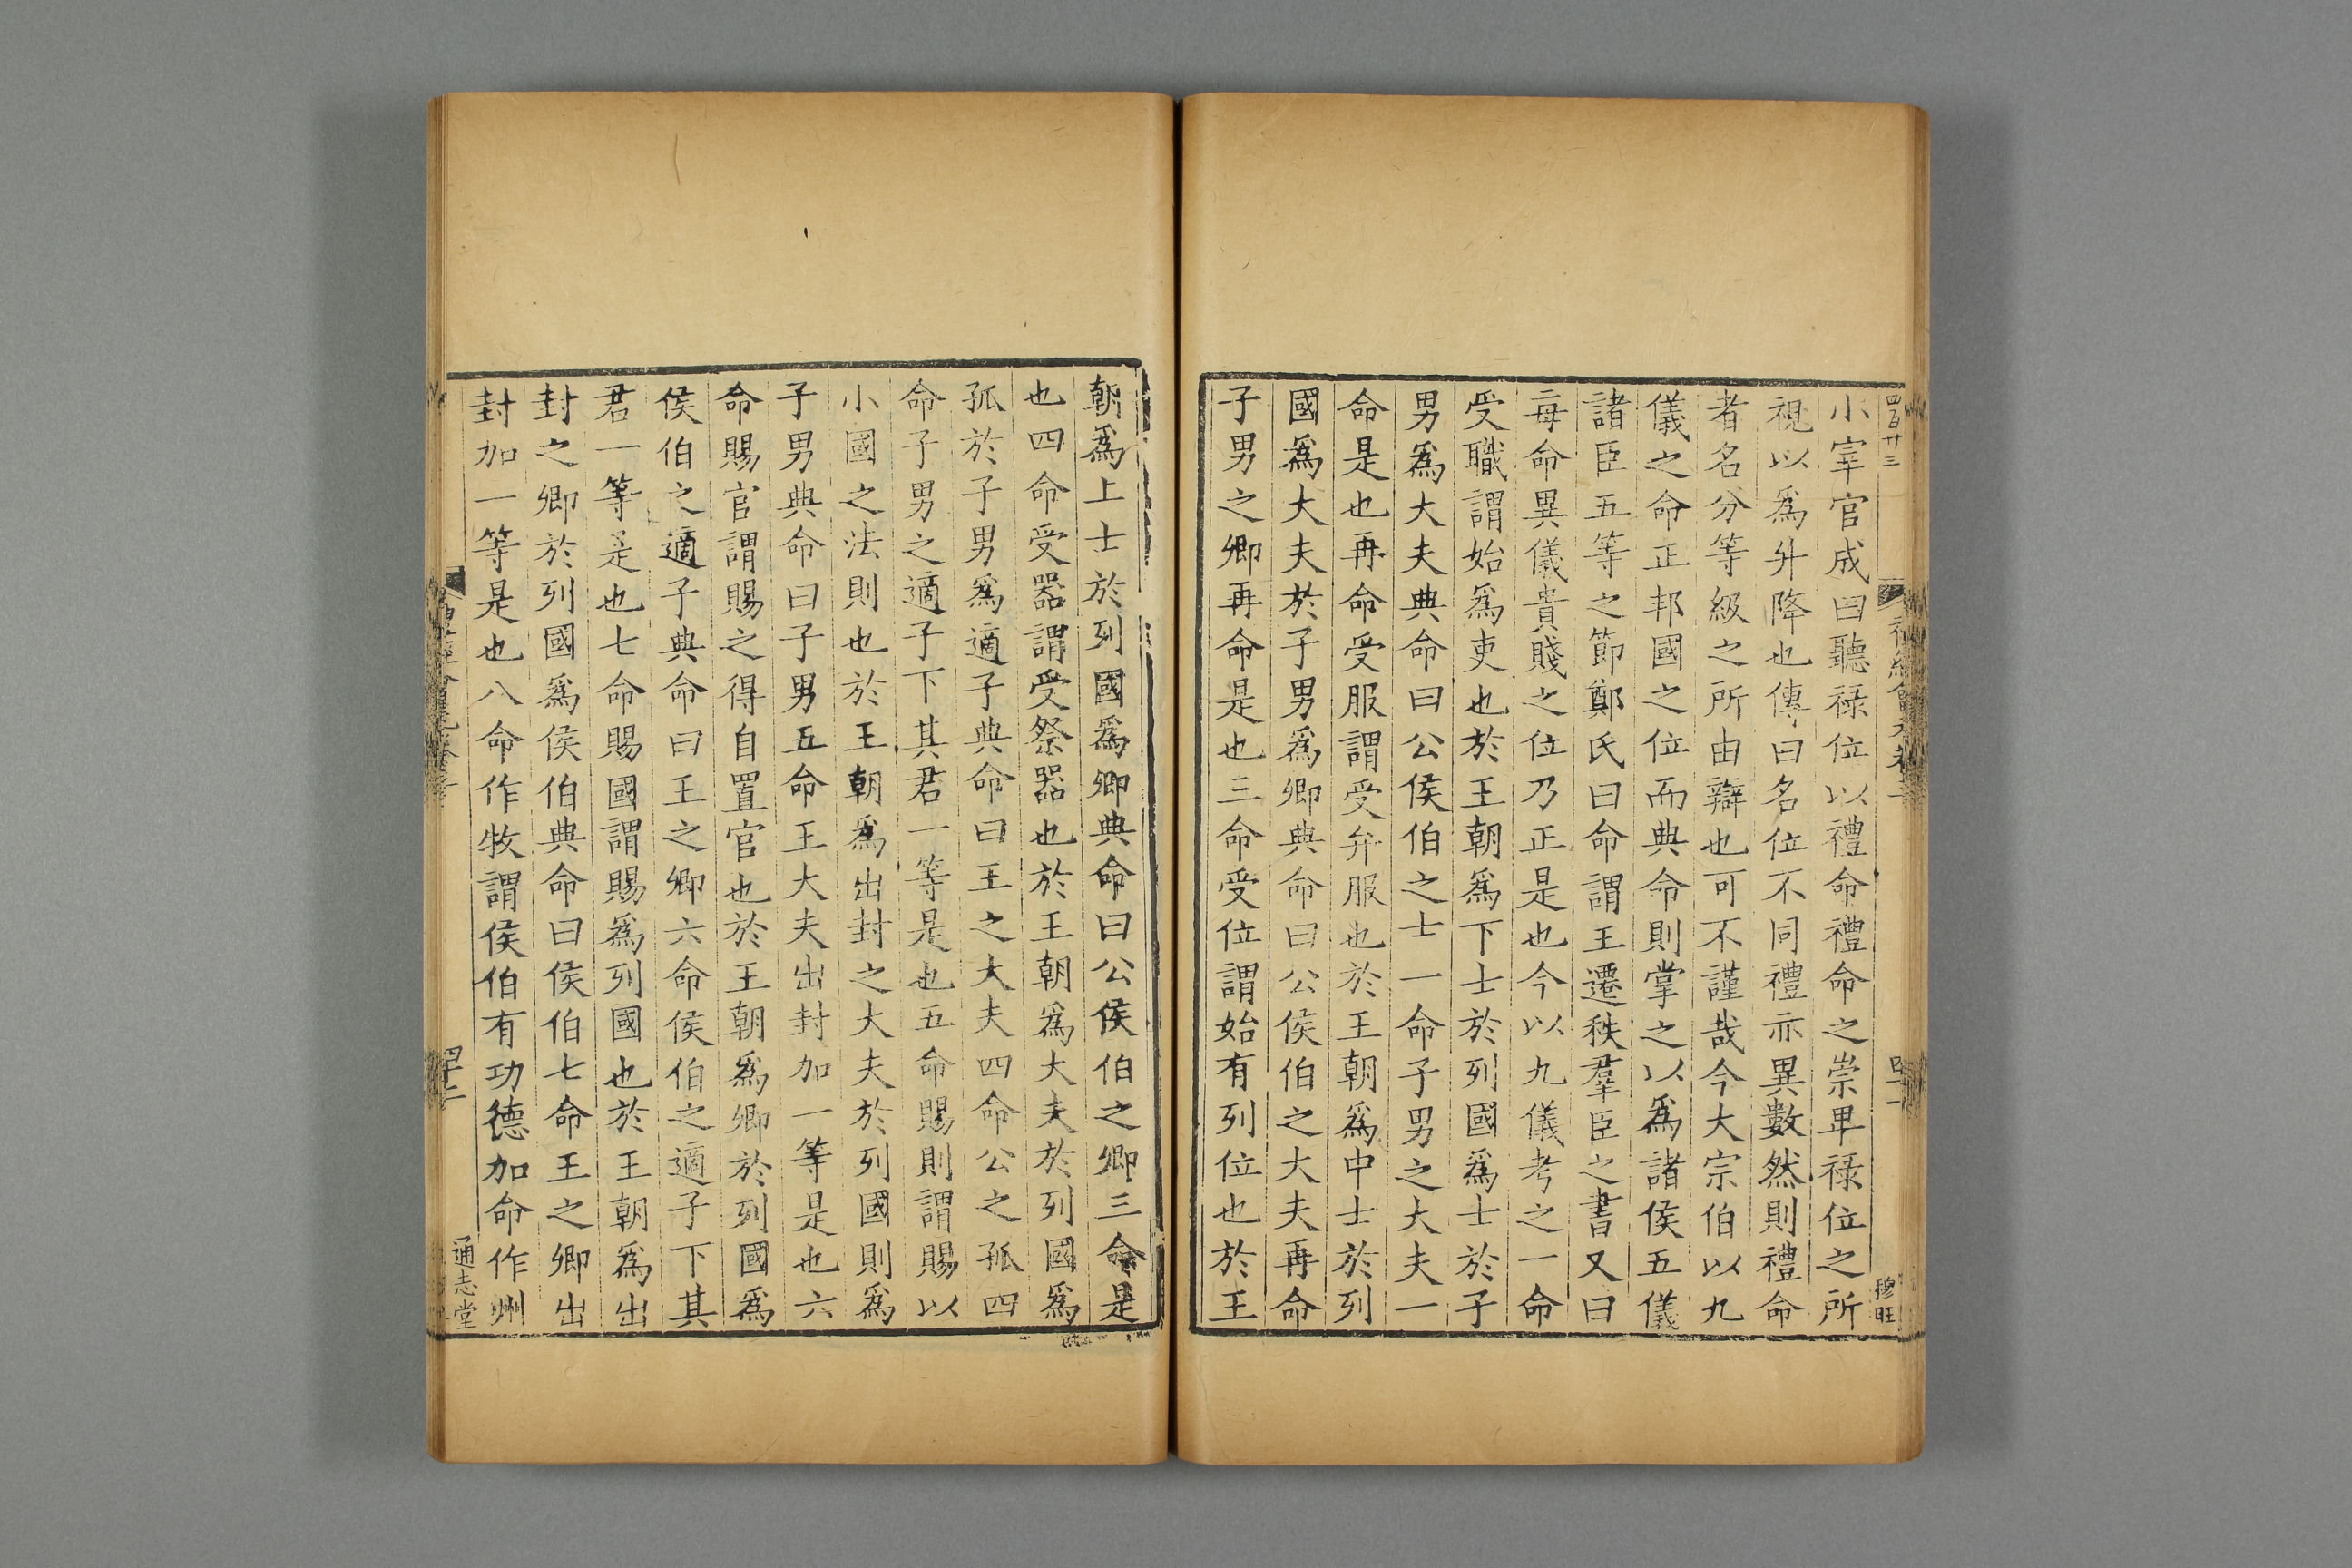 四百廿三
穆旺
小宰官成曰聽禄位以禮命禮命之崇卑禄位之所
視以爲升降也傳曰名位不同禮亦異數然則禮命
者名分等級之所由辯也可不謹哉今大宗伯以九
儀之命正邦國之位而典命則掌之以爲諸侯五儀
諸臣五等之節鄭氏曰命謂王遷秩羣臣之書又曰
每命異儀貴賤之位乃正是也今以九儀考之一命
受職謂始爲吏也於王朝爲下士於列國爲士於子
男爲大夫典命曰公侯伯之士一命子男之大夫一
命是也再命受服謂受弁服也於王朝爲中士於列
國爲大夫於子男爲卿典命曰公侯伯之大夫再命
子男之卿再命是也三命受位謂始有列位也於王
朝爲上士於列國爲卿典命曰公侯伯之卿三命是
也四命受器謂受祭器也於王朝爲大夫於列國爲
孤於子男爲適子典命曰王之大夫四命公之孤四
命子男之適子下其君一等是也五命賜則謂賜以
小國之法則也於王朝爲出封之大夫於列國則爲
子男典命曰子男五命王大夫出封加一等是也六
命賜官謂賜之得自置官也於王朝爲卿於列國爲
侯伯之適子典命曰王之卿六命侯伯之適子下其
君一等是也七命賜國謂賜爲列國也於王朝爲出
封之卿於列國爲侯伯典命曰侯伯七命王之卿出
封加一等是也八命作牧謂侯伯有功德加命作州
通志堂